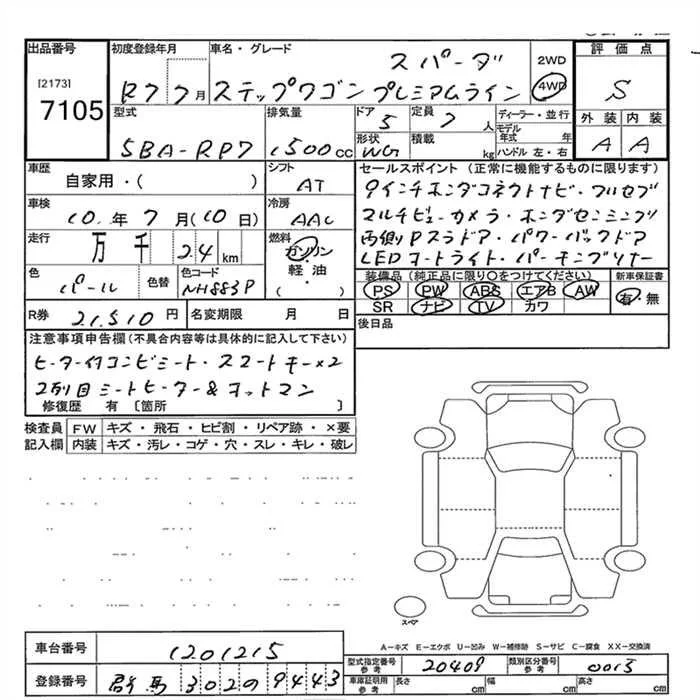 出品番号 初度登録年月 車名・グレード スパーダ 2WD 評価点
[2173] 7105 R7 7月 ステップワゴン プレミアムライン 4WD S
型式 排気量 ドア 5 定員 7人 ディーラー・並行 外装 内装
5BA-RP7 1500cc 形状 WG 積載 kg モデル年式 年 ハンドル 左・右 A A
車歴 シフト セールスポイント(正常に機能するものに限ります)
自家用・( ) AT 9インチホンダコネクトナビ・フルセブ
車検 冷房 マルチビューカメラ・ホンダセンシング
10.年 7月(10日) AAC 両側Pスラドア・パワーバックドア
走行 万 千 24 km 燃料 ガソリン LEDオートライト・パーキングソナー
軽・油
( )
装備品(純正品に限り○をつけてください) 新車保証書
色 パール 色替 色コード NH883P PS PW ABS エアB AW 有・無
SR ナビ TV カワ
R券 21,510円 名変期限 月 日 後日品
注意事項申告欄(不具合内容等は具体的に記入して下さい)
ヒーター付コンビシート・スマートキー×2
2列目シートヒーター&オットマン
修復歴 有〔箇所 〕
検査員 FW キズ・飛石・ヒビ割・リペア跡・×要
記入欄 内装 キズ・汚レ・コゲ・穴・スレ・キレ・破レ
スペア
A-キズ E-エクボ U-凹み W-補修跡 S-サビ C-腐食 XX-交換済
車台番号 1201215
型式指定番号 参考 20409 類別区分番号 参考 0013
登録番号 群馬 302 9443
車庫証明用 参考 長さ cm 幅 cm 高さ cm